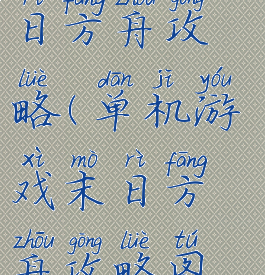 rì fāng zhōu gōng
日方舟攻
lüè dān jī yóu
略(单机游
xì mò rì fāng
戏末日方
zhōu gōng lüè tú
舟攻略图